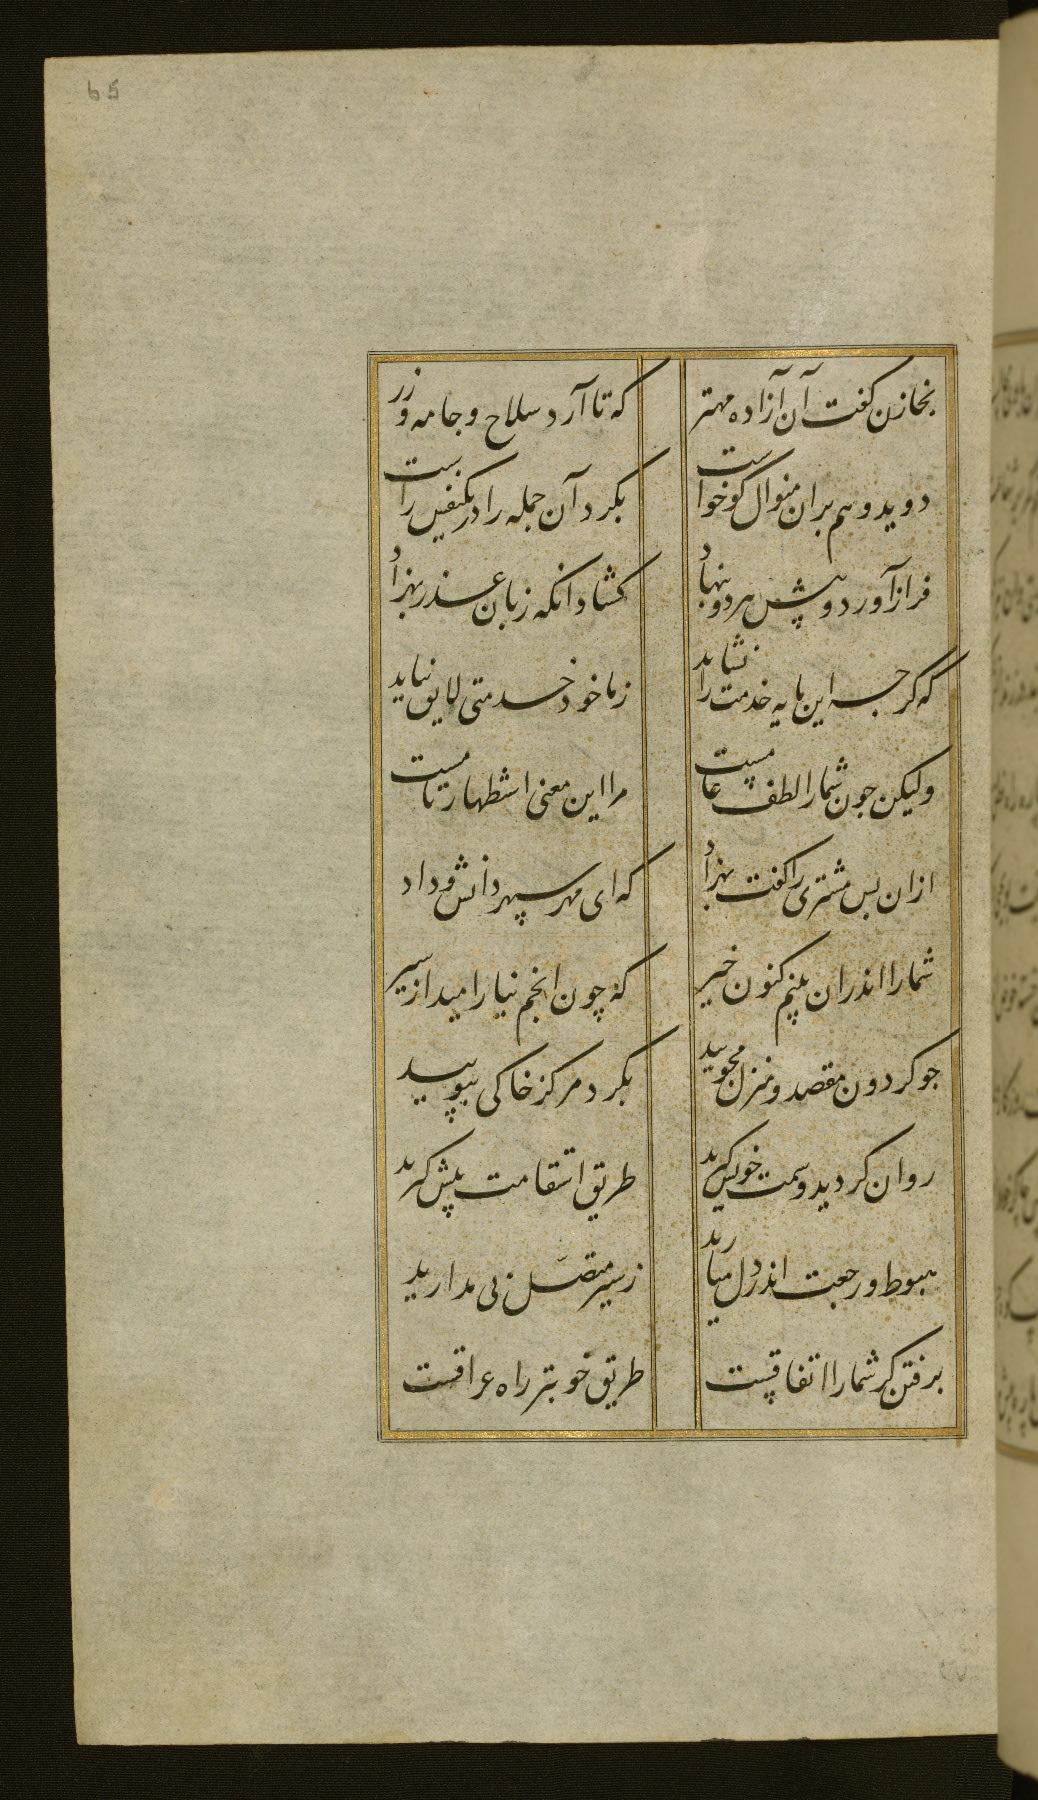 65
بخازن گفت آن آزاده مهتر که تا آرد سلاح و جامه و زر
دوید و هم بران منوال کو خواست بکرد آن جمله را در یکنفس راست
فراز آورد و پیش هر دو بنهاد کشاد انکه زبان عذر بهزاد
که کر جه این مایه خدمت را نشاید زما خود خدمتی لایق نیاید
ولیکن جون شمارا لطف عامیست مرا این معنی استظهار تامیست
ازان بس مشتری را کفت بهزاد که ای مهر سپهر دانش و داد
شمارا اندران بینم کنون خیر که چون انجم نیارامید از سیر
جو کردون مقصد و منزل مجویید بکرد مرکز خاکی بپویید
روان کردید و سمت خویش کیرید طریق استقامت پیش کرید
هبوط و رجعت اندر دل میارید ز سیر متصل بی مدارید
برفتن کر شمارا اتفاقیست طریق خوبتر راه عراقست